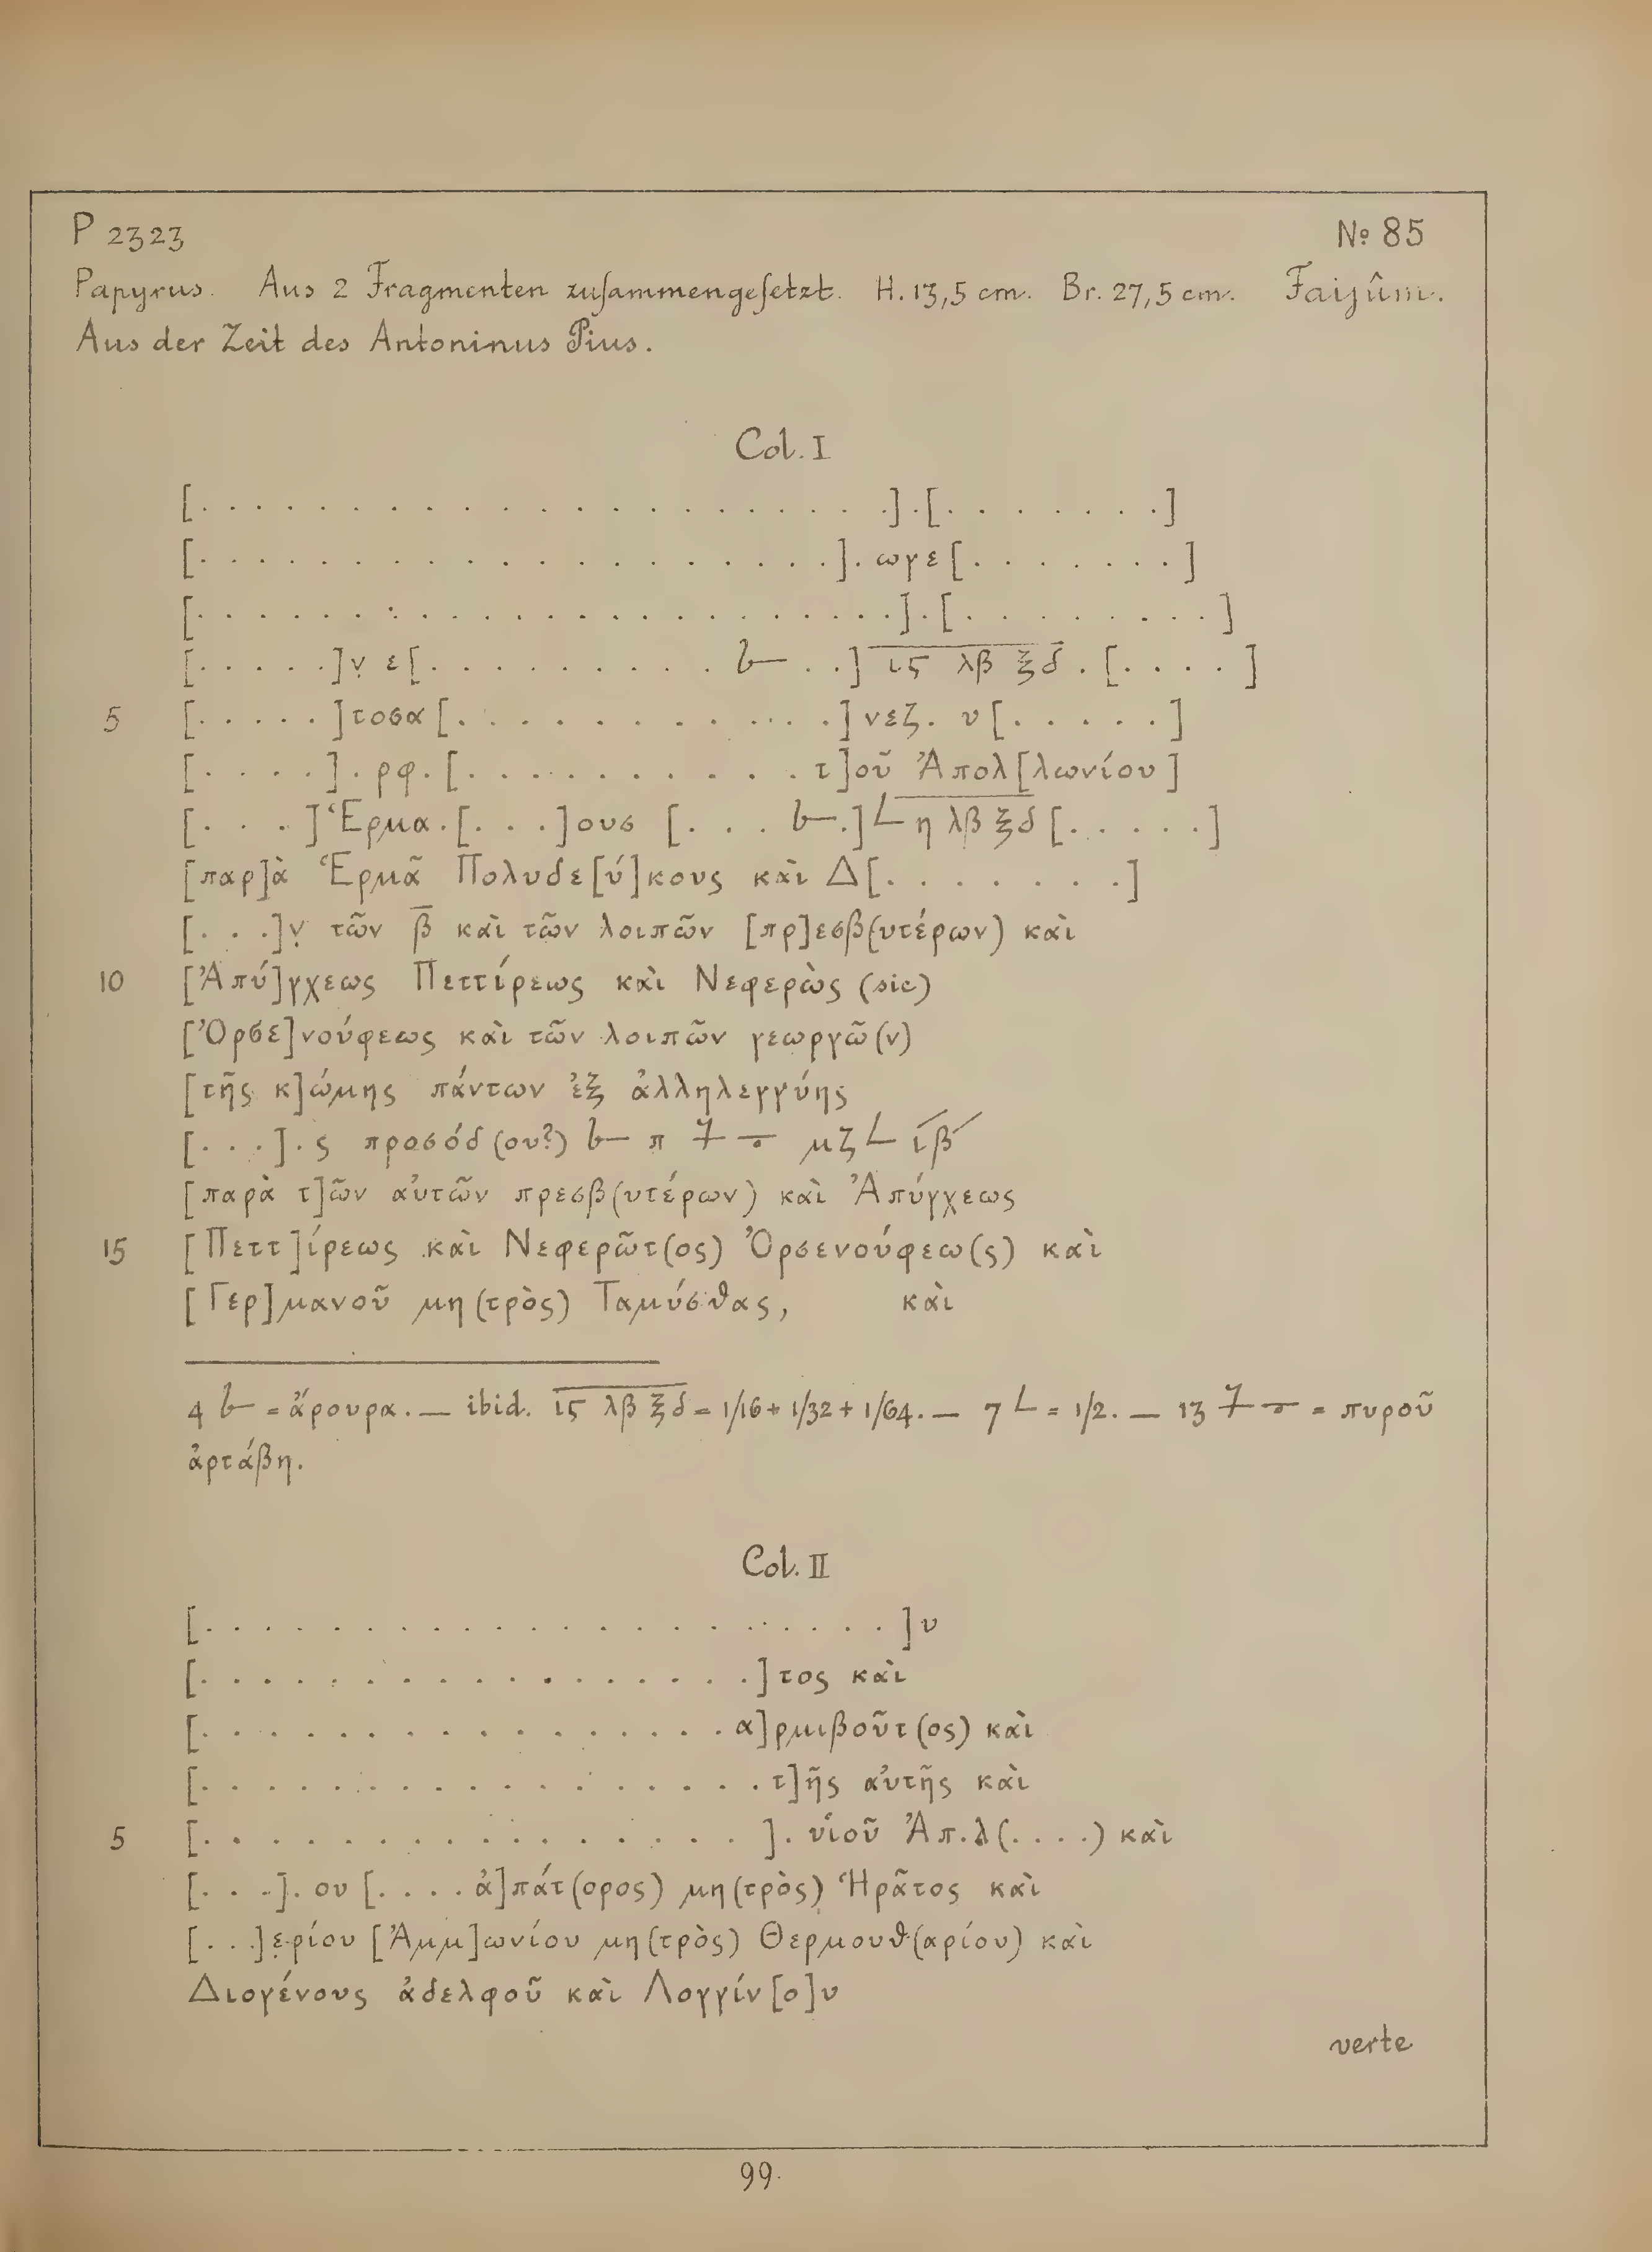 P 2323 № 85
Papyrus. Aus 2 Fragmenten zusammengesetzt. H. 13,5 cm. Br. 27,5 cm. Faijûm.
Aus der Zeit des Antoninus Pius.
Col. I
[. . . . . . . . . . . . . . . . . . . . . .] . [. . . . . . . .]
[. . . . . . . . . . . . . . . . . . . . .] . ωγε [. . . . . . .]
[. . . . . . . . . . . . . . . . . . . . . .] . [. . . . . . . . .]
[. . . . .]ν̣ ε[. . . . . . . . . . 𐅵— . .] ις λβ ξδ . [. . . . ]
5 [. . . . . ]τοσα[. . . . . . . . . . . . .]νεζ. υ[. . . . . ]
[. . . . .] . ρφ. [. . . . . . . . . . . τ]οῦ Ἀπολ[λωνίου]
[. . . .] Ἑρμα. [. . . .]ους [. . . .] 𐅵 η λβ ξδ [. . . . .]
[παρ]ὰ Ἑρμᾶ Πολυδε[ύ]κους καὶ Δ[. . . . . . . .]
[. . .]ν̣ τῶν β̅ καὶ τῶν λοιπῶν [πρ]εσβ(υτέρων) καὶ
10 [Ἀπύ]γχεως Πεττίρεως καὶ Νεφερὼς (sic)
[Ὀρσε]νούφεως καὶ τῶν λοιπῶν γεωργῶ(ν)
[τῆς κ]ώμης πάντων ἐξ ἀλληλεγγύης
[. . .] . ς προσόδ(ου?) π μζ ιβ
[παρὰ τ]ῶν αὐτῶν πρεσβ(υτέρων) καὶ Ἀπύγχεως
15 [Πεττ]ίρεως καὶ Νεφερῶτ(ος) Ὀρσενούφεω(ς) καὶ
[Γερ]μανοῦ μη(τρὸς) Ταμύσθας, καὶ
4 = ἄρουρα. — ibid. ις λβ ξδ = 1/16 + 1/32 + 1/64. — 7 𐅵 = 1/2. — 13 = πυροῦ
ἀρτάβη.
Col. II
[. . . . . . . . . . . . . . . . . . . . . .]υ
[. . . . . . . . . . . . . . . . . .]τος καὶ
[. . . . . . . . . . . . . . . . . α]ρμιβοῦτ(ος) καὶ
[. . . . . . . . . . . . . . . . . . τ]ῆς αὐτῆς καὶ
5 [. . . . . . . . . . . . . . . . . ] . υἱοῦ Ἀπ.λ(. . . .) καὶ
[. . .] . ου [. . . . ἀ]πάτ(ορος) μη(τρὸς) Ἡρᾶτος καὶ
[. . .]ε̣ρίου [Ἀμμ]ωνίου μη(τρὸς) Θερμουθ(αρίου) καὶ
Διογένους ἀδελφοῦ καὶ Λογγίν[ο]υ
verte
99.